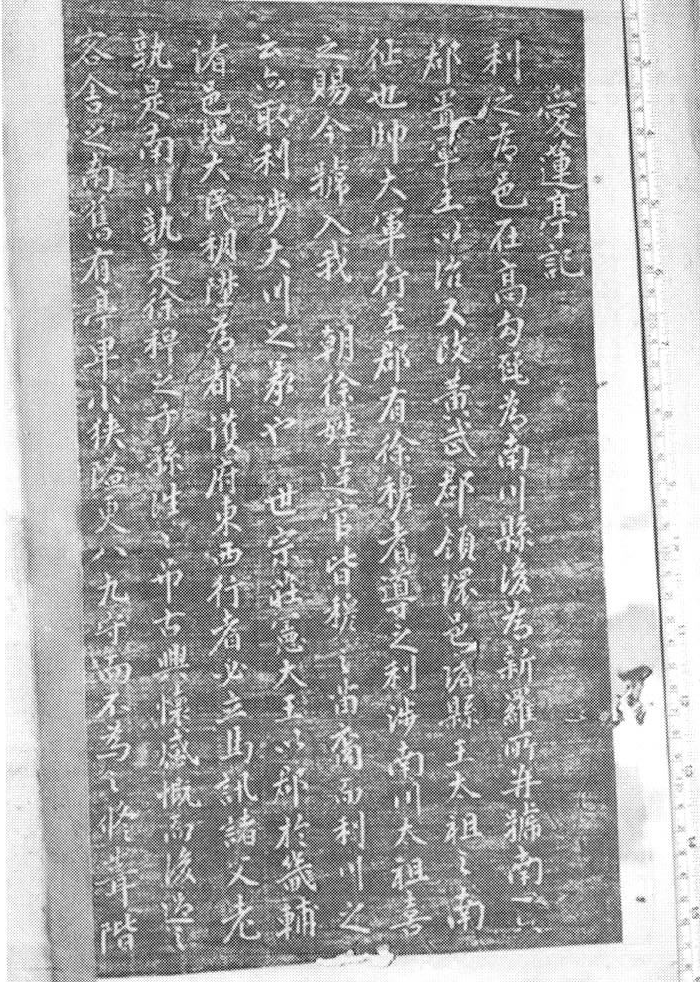 愛蓮亭記
利之为邑在高勾麗為南川縣後為新羅所并號南川
郡置軍主以治又改黃武郡領環邑諸縣王太祖之南
征也帥大軍行至郡有徐穆者導之利涉南川太祖喜
之賜今號入我 朝徐姓達官皆穆之苗裔而利川之
云亦取利涉大川之彖也 世宗莊憲大王以郡於畿輔
諸邑地大民稠陞為都護府東西行者必立馬訊諸父老
孰是南川孰是徐穆之子孫往〻吊古興懷感慨而後過之
客舍之南舊有亭卑小狹隘更八九守而不為之修葺階